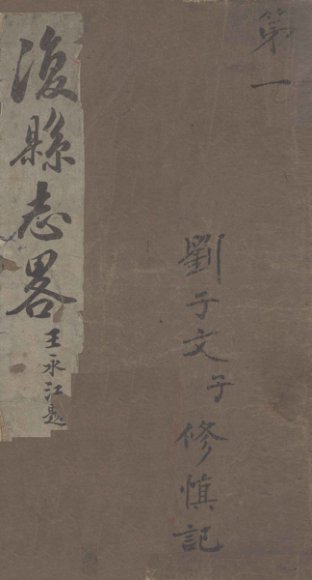 第一
劉子文子修慎記
復縣志畧
王永江題